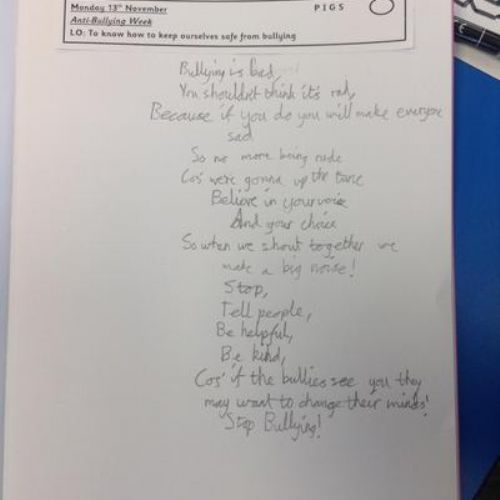 Monday 13th November
PIGS
Anti-Bullying Week
LO: To know how to keep ourselves safe from bullying
Bullying is bad,
You shouldn't think it's rad,
Because if you do you will make everyone
sad
So no more being rude
Cos' we're gonna up the tone
Believe in your voice
And your choice
So when we shout together we
make a big noise!
Stop,
Tell people,
Be helpful,
Be kind,
Cos' if the bullies see you they
may want to change their minds!
Stop Bullying!